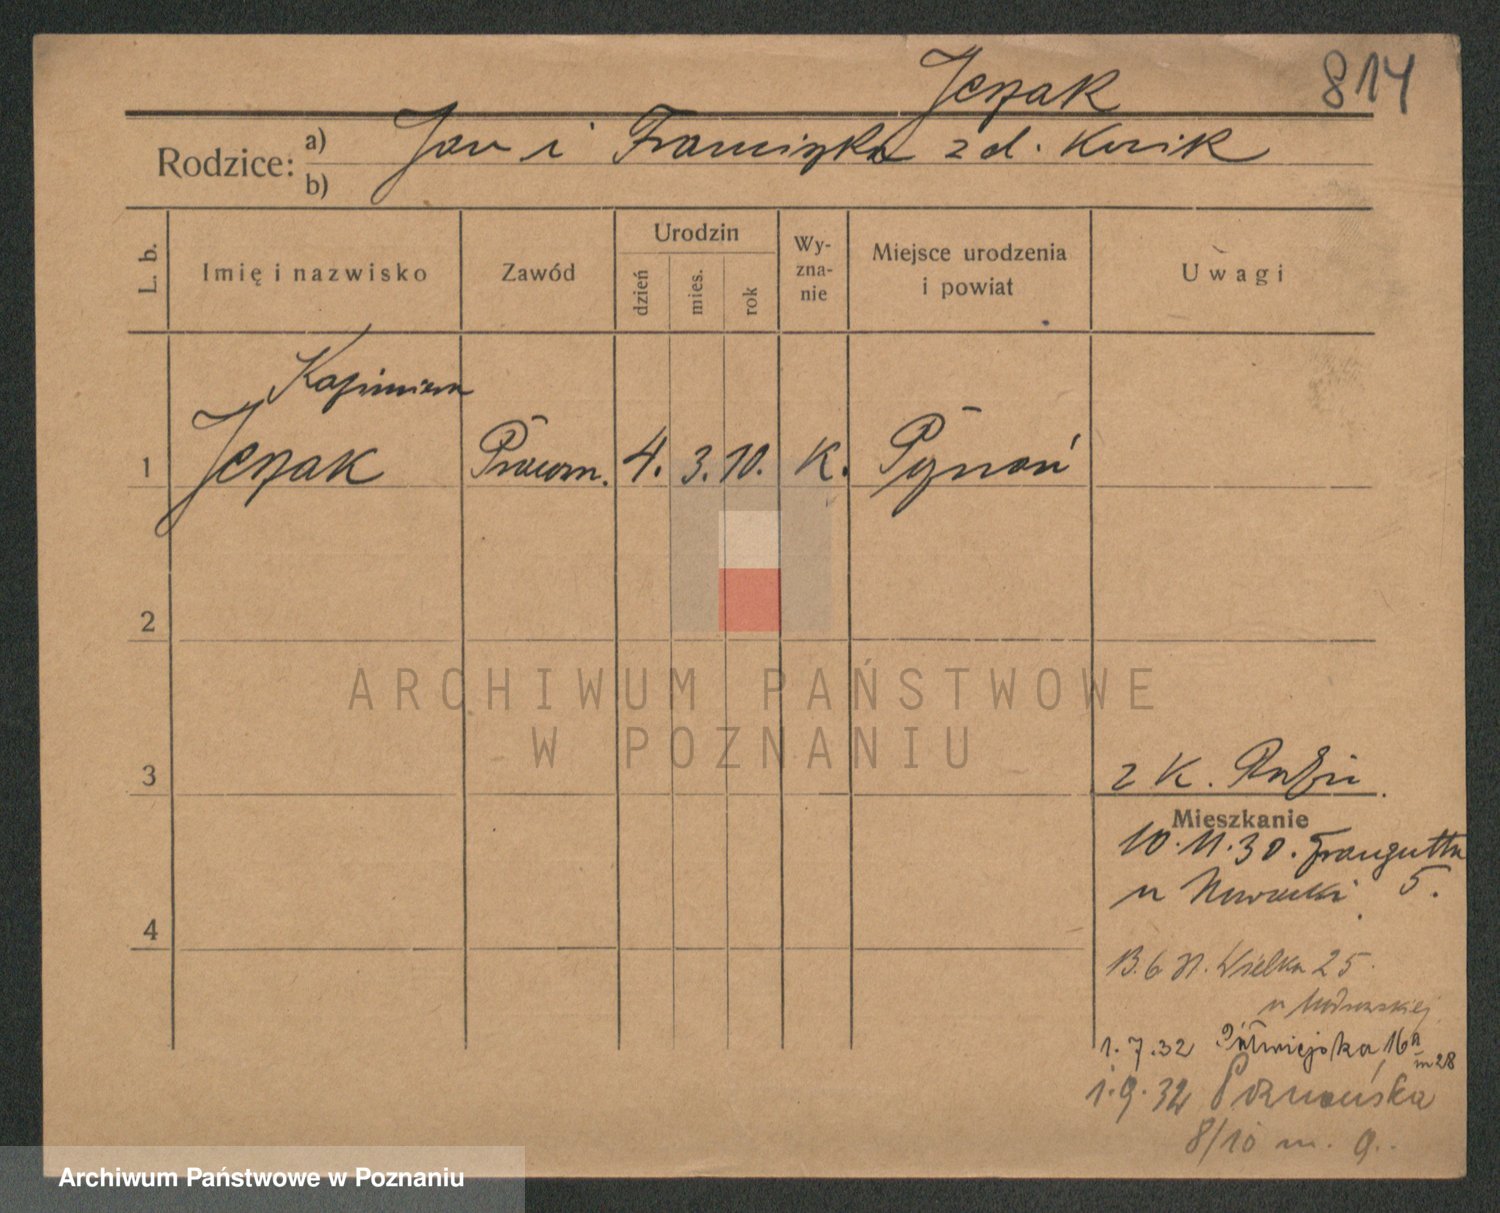 Jezak
814
Rodzice: a) Jan i Franciszka z d. Kusik
b)
L. b.
Imię i nazwisko
Zawód
Urodzin
dzień
mies.
rok
Wy-
zna-
nie
Miejsce urodzenia
i powiat
Uwagi
Kazimiera
1 Jezak Pracown. 4. 3. 10. K. Poznań
2
ARCHIWUM PAŃSTWOWE
W POZNANIU
3
z K.
Mieszkanie
10.11.30. Traugutta
u Nowacki 5.
4
13.6 31. Wielka 25.
u
1.7.32 Półwiejska 16a
m 28
1.9.32 Poznańska
8/10 m. 9.
Archiwum Państwowe w Poznaniu